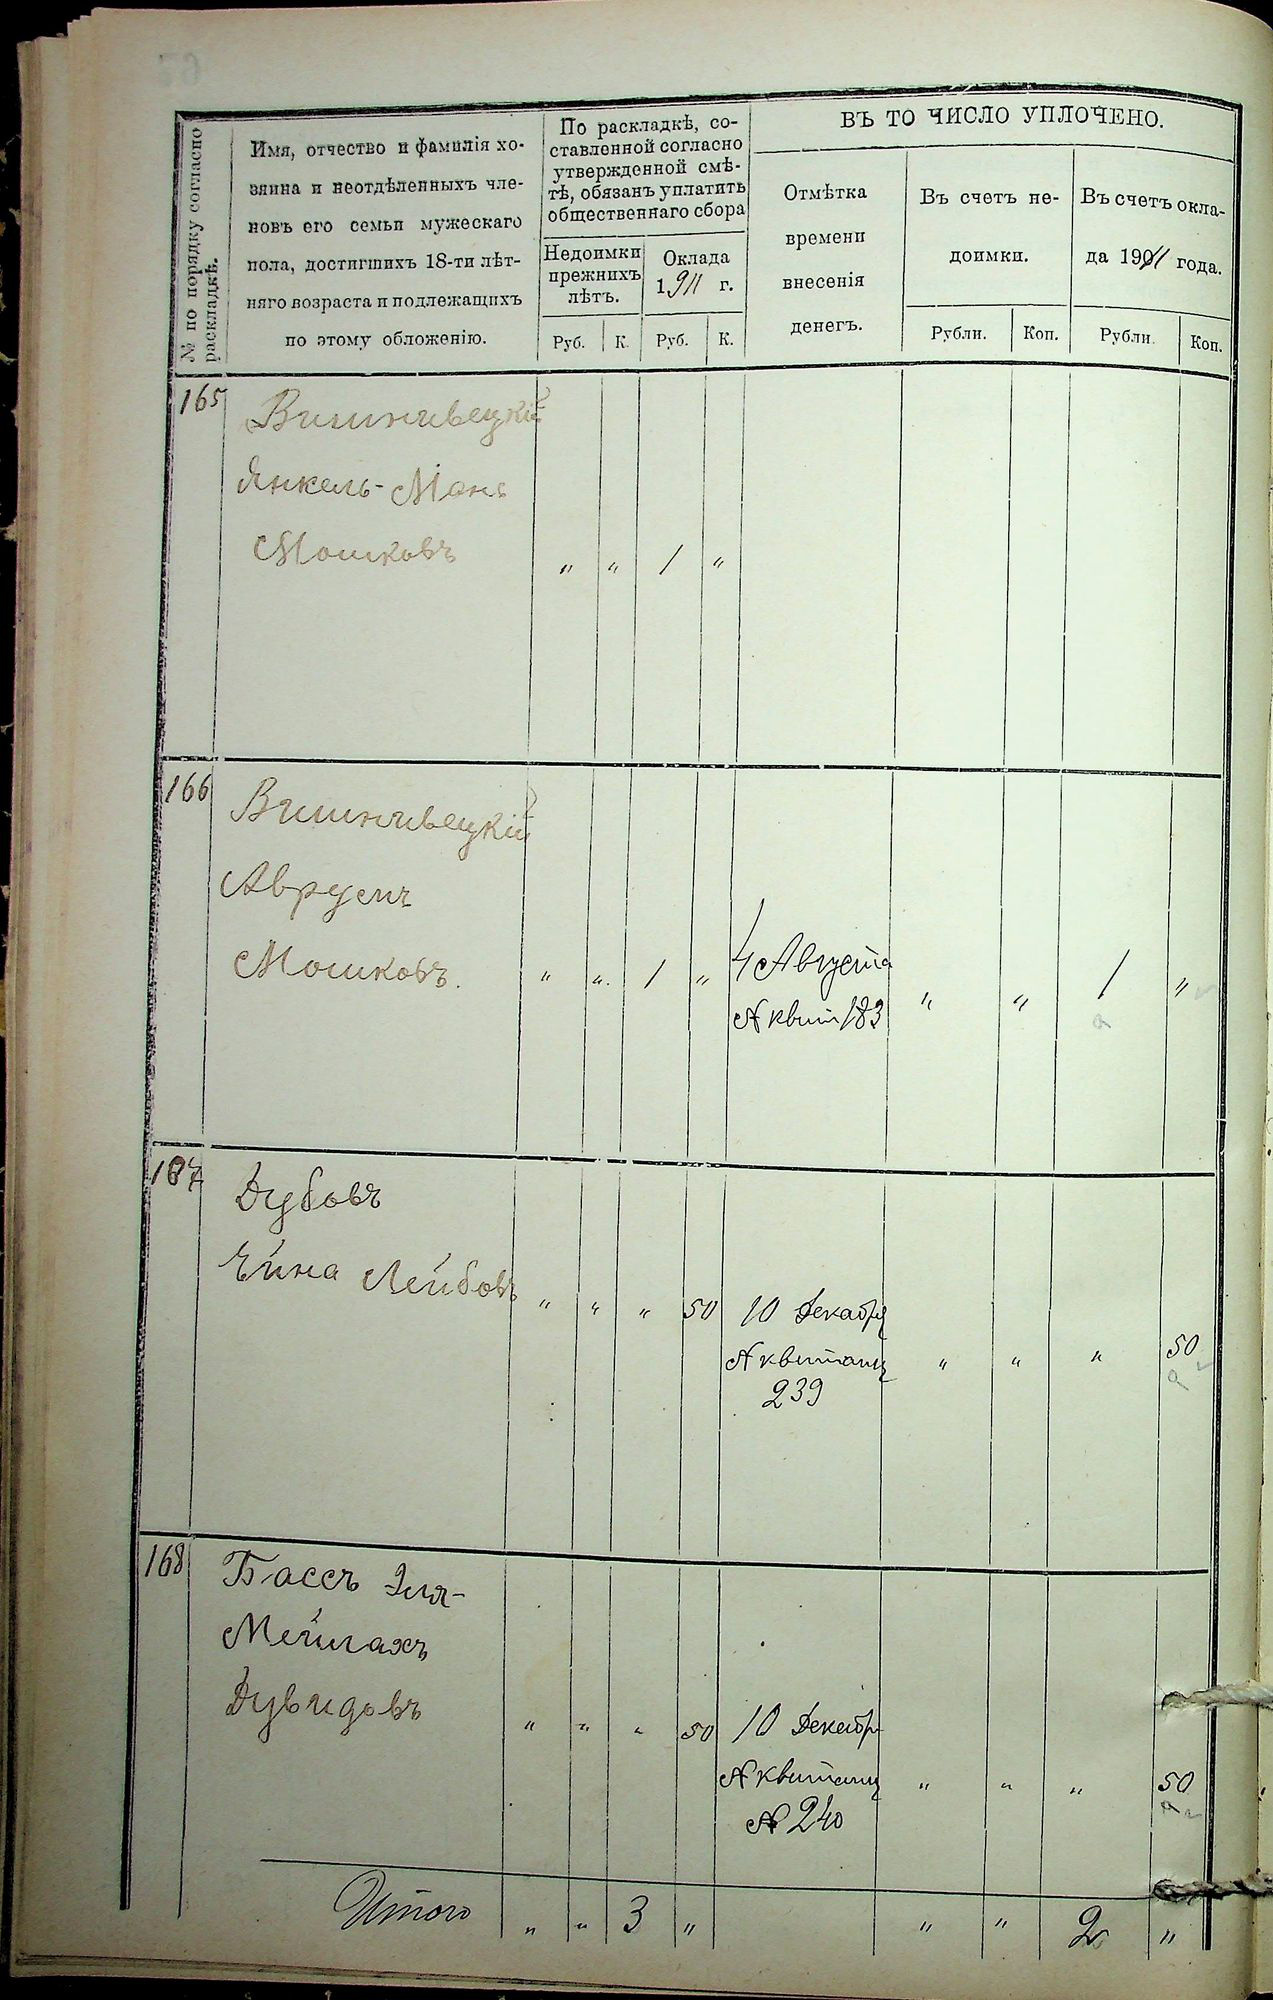 № по порядку согласно
раскладкѣ.
Имя, отчество и фамилія хо-
зяина и неотдѣленныхъ чле-
новъ его семьи мужескаго
пола, достигшихъ 18-ти лѣт-
няго возраста и подлежащихъ
по этому обложенію.
По раскладкѣ, со-
ставленной согласно
утвержденной смѣ-
тѣ, обязанъ уплатить
общественнаго сбора
Недоимки
прежнихъ
лѣтъ.
Оклада
1911 г.
Руб. К. Руб. К.
ВЪ ТО ЧИСЛО УПЛОЧЕНО.
Отмѣтка
времени
внесенія
денегъ.
Въ счетъ не-
доимки.
Въ счетъ окла-
да 1911 года.
Рубли. Коп. Рубли. Коп.
165 Вишнивецкій
Янкель-Мань
Мошковъ " " 1 "
166 Вишнивецкій
Аврумъ
Мошковъ. " " 1 " 4 Августа " " 1 "
№ квит 183
167 Дубовъ
Лейбовъ " " " 50 10 Декабр
№ квитанц " " " 50
239
168 Бассъ Эля-
Мейлахъ
Дувидовъ " " " 50 10 Декабр
№ квитанц " " " 50
№ 240
Итого " " 3 " " " 2 "